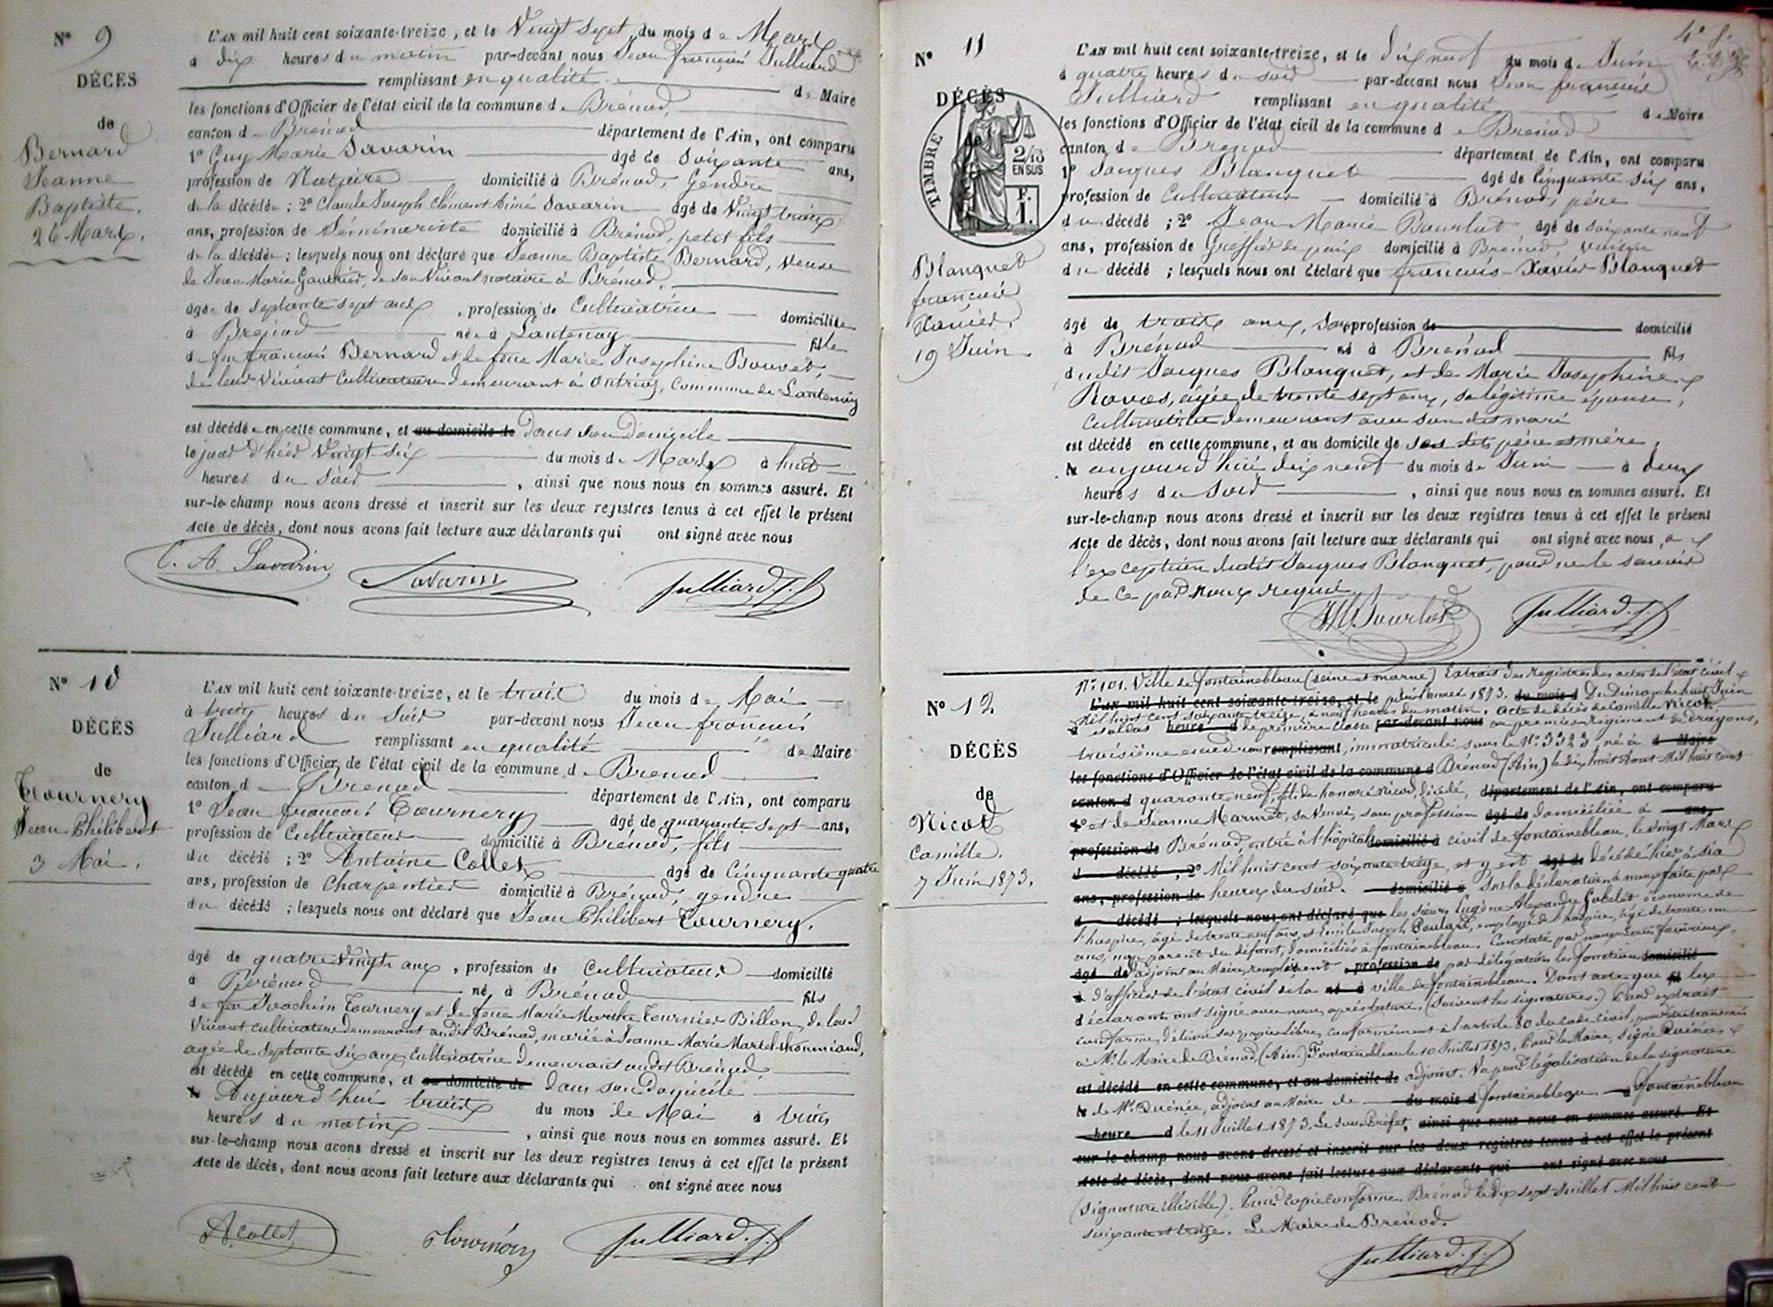 N° 9
DÉCÈS
de
Bernard
Jeanne
Baptiste.
26 Mars.
L'AN mil huit cent soixante-treize, et le Vingt sept du mois de Mars
à dix heures du matin par-devant nous Jean françois Julliard
remplissant en qualité de Maire
les fonctions d'Officier de l'état civil de la commune de Brénod,
canton de Brénod département de l'Ain, ont comparu
1° Guy Marie Savarin âgé de Soixante ans,
profession de Notaire domicilié à Brénod, Gendre
de la décédée ; 2° Claude Joseph Clément Aimé Savarin âgé de Vingt trois
ans, profession de Séminariste domicilié à Brénod, petit fils
de la décédée ; lesquels nous ont déclaré que Jeanne Baptiste Bernard, Veuve
de Jean Marie Gauthier, de son Vivant notaire à Brénod,
âgée de septante sept ans, profession de Cultivatrice domiciliée
à Brénod née à Lantenay fille
de feu françois Bernard et de feue Marie Josephine Bouvet,
de leur Vivant Cultivateurs demeurant à , Commune de Lantenay
est décédée en cette commune, et au domicile de dans son Domicile
le jour d'hier Vingt six du mois de Mars à huit
heures du Soir , ainsi que nous nous en sommes assuré. Et
sur-le-champ nous avons dressé et inscrit sur les deux registres tenus à cet effet le présent
Acte de décès, dont nous avons fait lecture aux déclarants qui ont signé avec nous
C. A. Savarin Savarin Julliard J. f.
N° 10
DÉCÈS
de
Tournery
Jean Philibert
3 Mai.
L'AN mil huit cent soixante-treize, et le trois du mois de Mai
à trois heures du Soir par-devant nous Jean françois
Julliard remplissant en qualité de Maire
les fonctions d'Officier de l'état civil de la commune de Brénod
canton de Brénod département de l'Ain, ont comparu
1° Jean françois Tournery âgé de quarante sept ans,
profession de Cultivateur domicilié à Brénod, fils
du décédé ; 2° Antoine Collet âgé de Cinquante quatre
ans, profession de Charpentier domicilié à Brénod, gendre
du décédé ; lesquels nous ont déclaré que Jean Philibert Tournery.
âgé de quatre Vingts ans, profession de Cultivateur domicilié
à Brénod né à Brénod fils
de feu Joachim Tournery et de feue Marie Marthe Tournier Billon, de leur
Vivant cultivateurs demeurant audit Brénod, marié à Jeanne Marie
agée de septante six ans, Cultivatrice demeurant audit Brénod,
est décédé en cette commune, et au domicile de dans son Domicile
le Aujourd'hui trois du mois de Mai à trois
heures du matin , ainsi que nous nous en sommes assuré. Et
sur-le-champ nous avons dressé et inscrit sur les deux registres tenus à cet effet le présent
Acte de décès, dont nous avons fait lecture aux déclarants qui ont signé avec nous
A. Collet Tournery Julliard J. f.
4e f.
N° 11
DÉCÈS
TIMBRE
2/10
EN SUS
F.
1.
Blanquet
françois
Xavier.
19 Juin
L'AN mil huit cent soixante-treize, et le dix neuf du mois de Juin
à quatre heures du soir par-devant nous Jean françois
Julliard remplissant en qualité de Maire
les fonctions d'Officier de l'état civil de la commune de Brénod
canton de Brénod département de l'Ain, ont comparu
1° Jacques Blanquet âgé de Cinquante Six ans,
profession de Cultivateur domicilié à Brénod, père
du décédé ; 2° Jean Marie Bourlot âgé de soixante neuf
ans, profession de Greffier de paix domicilié à Brénod, voisin
du décédé ; lesquels nous ont déclaré que françois-Xavier Blanquet
âgé de trois ans, sans profession de domicilié
à Brénod né à Brénod fils
dudit Jacques Blanquet, et de Marie Josephine
Ravos, agée de trente sept ans, sa légitime épouse,
Cultivatrice demeurant avec son dit mari
est décédé en cette commune, et au domicile de ses dits père et mère,
le aujourd'hui dix neuf du mois de Juin à deux
heures du Soir , ainsi que nous nous en sommes assuré. Et
sur-le-champ nous avons dressé et inscrit sur les deux registres tenus à cet effet le présent
Acte de décès, dont nous avons fait lecture aux déclarants qui ont signé avec nous, à
l'exception dudit Jacques Blanquet, pour ne le savoir
de ce par nous requis.
JM Bourlot Julliard. J. f.
N° 12
DÉCÈS
de
Nicod
Camille.
7 Juin 1873.
N° 101. Ville de fontainebleau (seine et marne) Extrait des registres des actes de l'état civil
L'AN mil huit cent soixante-treize, et le pour l'année 1873. du mois d Du Dimanche huit Juin
Mil huit cent soixante treize, à neuf heures du matin. Acte de décès de Camille Nicod,
à soldat heure d de première classe par-devant nous au premier régiment de dragons,
troisième escadron remplissant, immatriculé sous le N° 3323, né à d Maire
les fonctions d'Officier de l'état civil de la commune d Brénod (Ain) le dix huit Aout Mil huit cent
canton d quarante neuf, fils de honoré Nicod, décédé, département de l'Ain, ont comparu
1° et de Jeanne , sa Veuve, sans profession âgé de domiciliée à ans,
profession de Brénod, entré à l'hôpital domicilié à civil de fontainebleau, le vingt Mars
d décédé ; 2° Mil huit cent soixante treize, et y est âgé de décédé hier à six
ans, profession de heures du soir. domicilié à Sur la déclaration à nous faite par
d décédé ; lesquels nous ont déclaré que les sieurs Eugène Alexandre économe de
l'hospice, âgé de trente neuf ans, et Emile Joseph , employé de l'hospice, âgé de trente un
ans, non parent du défunt, domiciliés à fontainebleau. Constaté par nous
âgé de adjoint au Maire, remplissant profession de par délégation les fonctions domicilié
à d'officier de l'état civil de la né à ville de fontainebleau. Dont acte que fil les
déclarants ont signé avec nous après lecture. (Suivent les signatures.) Pour extrait
conforme, délivré sur papier libre, conformément à l'article 80 du Code civil, pour être transmis
à Mr le Maire de Brénod (Ain.) Fontainebleau le 10 Juillet 1873. Pour le Maire, signé Guénée,
est décédé en cette commune, et au domicile de adjoint. Vu pour légalisation de la signature
le de Mr Guénée, adjoint au Maire de du mois d fontainebleau à fontainebleau
heure d le 11 Juillet 1873. Le sous Préfet, ainsi que nous nous en sommes assuré. Et
sur-le-champ nous avons dressé et inscrit sur les deux registres tenus à cet effet le présent
Acte de décès, dont nous avons fait lecture aux déclarants qui ont signé avec nous
(signature illisible). Pour copie conforme. Brénod le Dix sept Juillet Mil huit cent
soixante treize. Le Maire de Brénod.
Julliard. J. f.